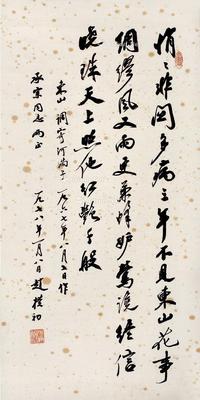 悄〻非關多病三年不見東山花事
綢繆風又雨更兼蜂妒鶯讒終信
曉珠天上照他紅艷千般
東山 調寄河滿子 一九六七年八月七日作
承 同志 正
一九七八年一月八日 趙樸初